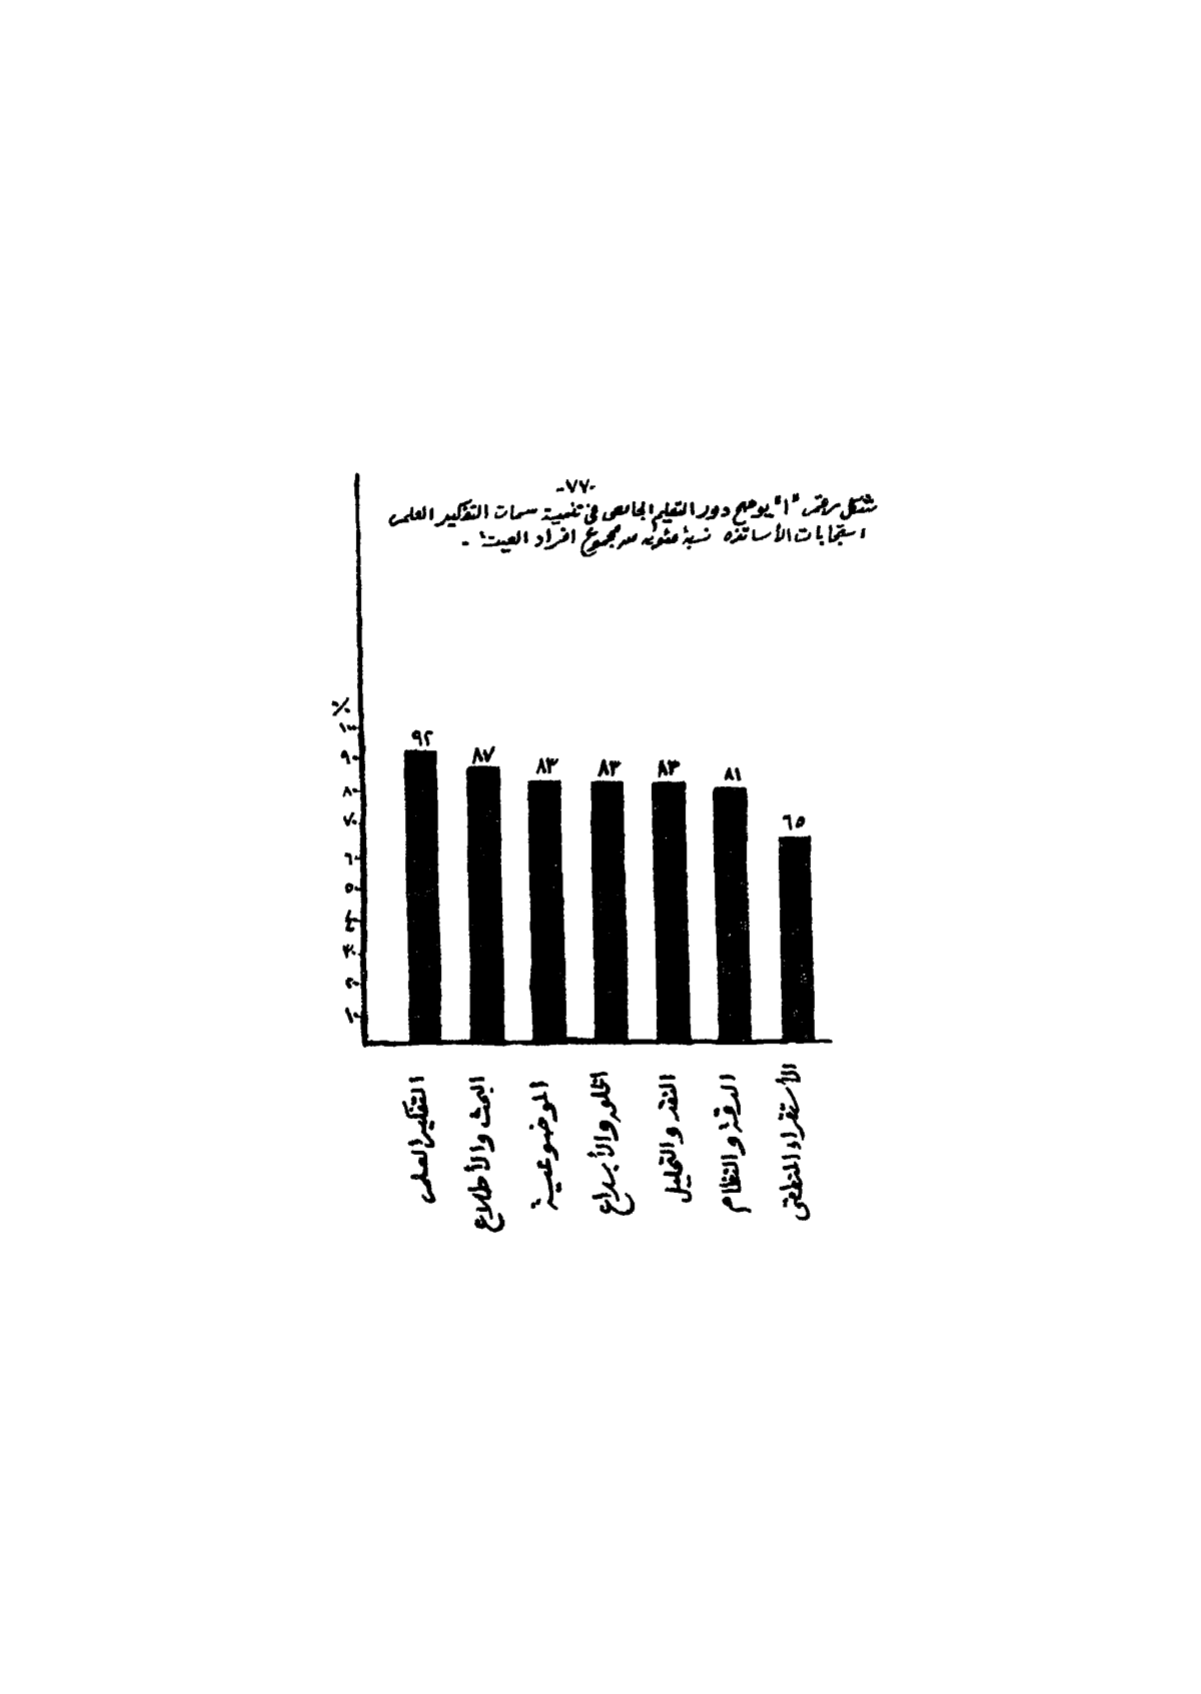 -٧٧-
شكل رقم "١" يوضح دور التعليم الجامعى فى تنمية سمات التفكير العلمى
استجابات الأساتذه نسبة مئويه من مجموع افراد العينة .
%
١٠٠
٩٠
٨٠
٧٠
٦٠
٥٠
٤٠
٣٠
٢٠
١٠
٩٢
٨٧
٨٣
٨٣
٨٣
٨١
٦٥
التفكير العلمى
البحث والأطلاع
الموضوعية
الخلق والأبداع
النقد والتحليل
الدقة والنظام
الأستقراء المنطقى